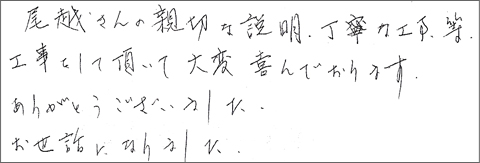 尾越さんの親切な説明、丁寧な工事、等、
工事をして頂いて大変喜んでおります。
ありがとうございました。
お世話になりました。